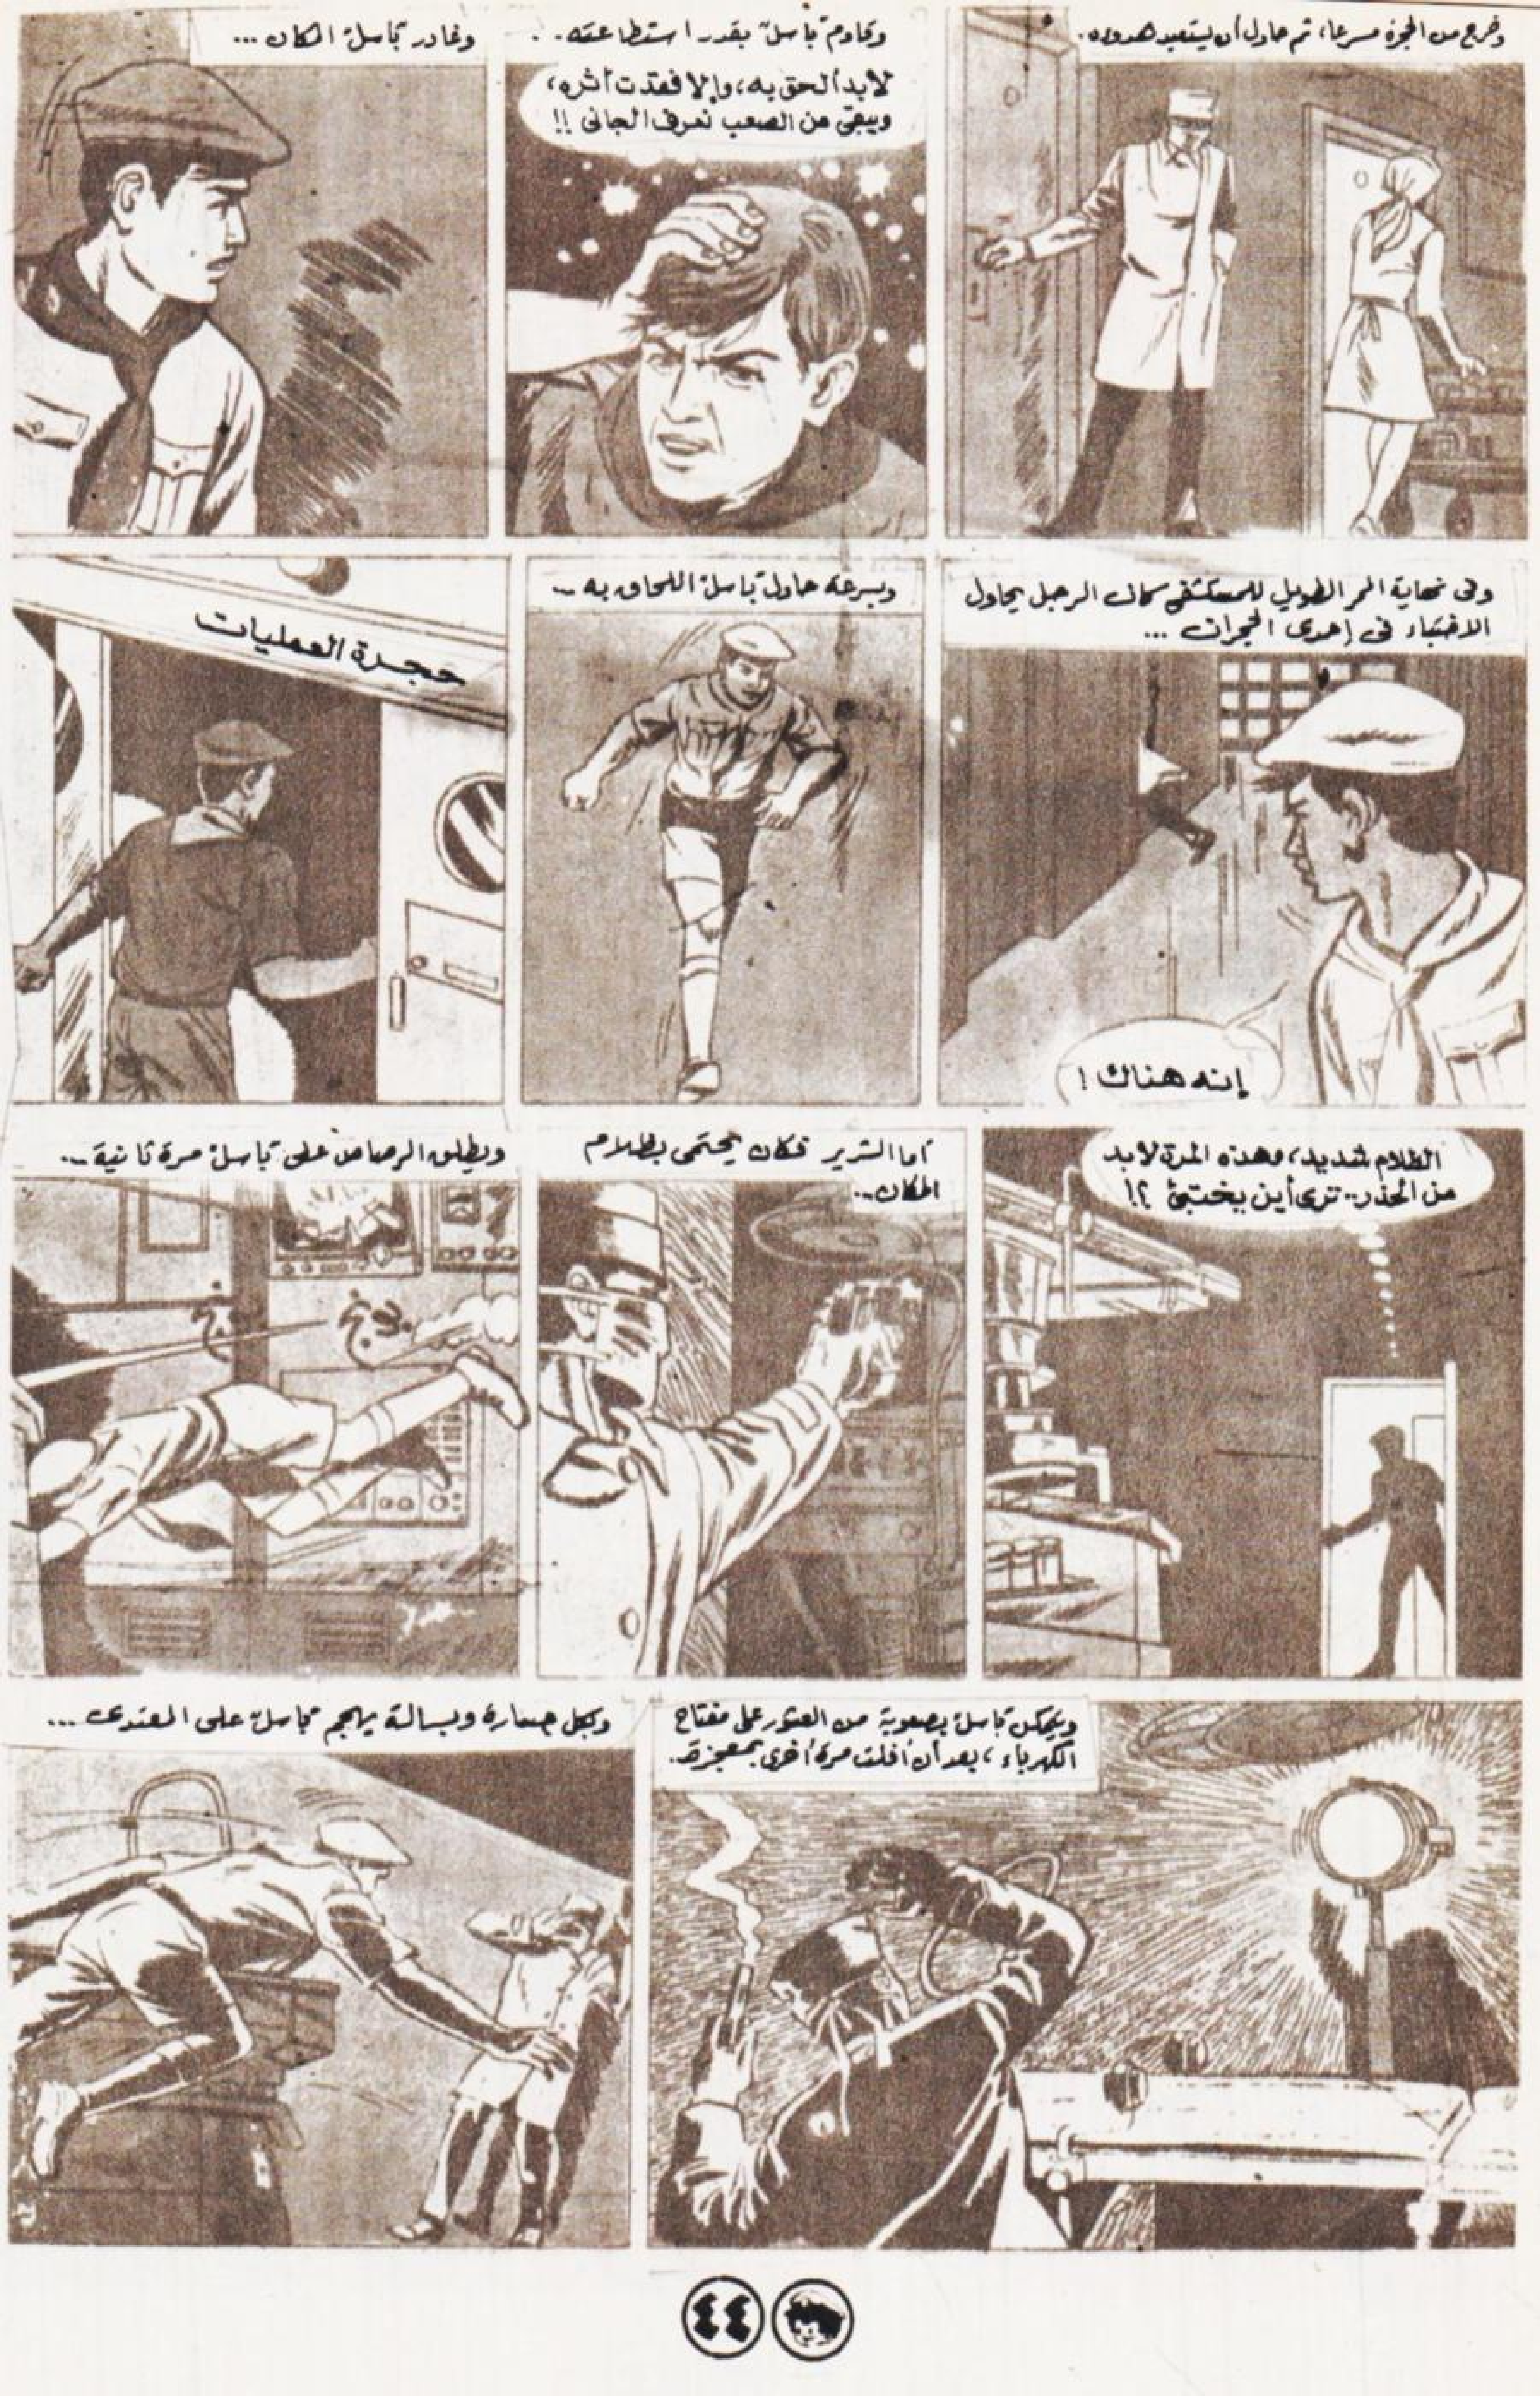 وخرج من الحجرة مسرعا، ثم حاول أن يستعيد هدوءه.
وقاوم "باسل" بقدر استطاعته. .
لابد ألحق به، وإلا فقدت أثره،
ويبقى من الصعب نعرف الجانى !!
وغادر "باسل" المكان ...
وفى نهاية الممر الطويل للمستشفى كان الرجل يحاول
الاختباء فى إحدى الحجرات ...
إنه هناك !
وبسرعة حاول "باسل" اللحاق به ..
حجرة العمليات
الظلام شديد، وهذه المرة لابد
من الحذر.. ترى أين يختبئ ؟!
أما الشرير فكان يحتمى بظلام
المكان..
ويطلق الرصاص على "باسل" مرة ثانية ...
ويتمكن "باسل" بصعوبة من العثور على مفتاح
الكهرباء، بعد أن أفلت مرة أخرى بمعجزة.
وبكل جسارة وبسالة يهجم "باسل" على المعتدى ...
٤٤